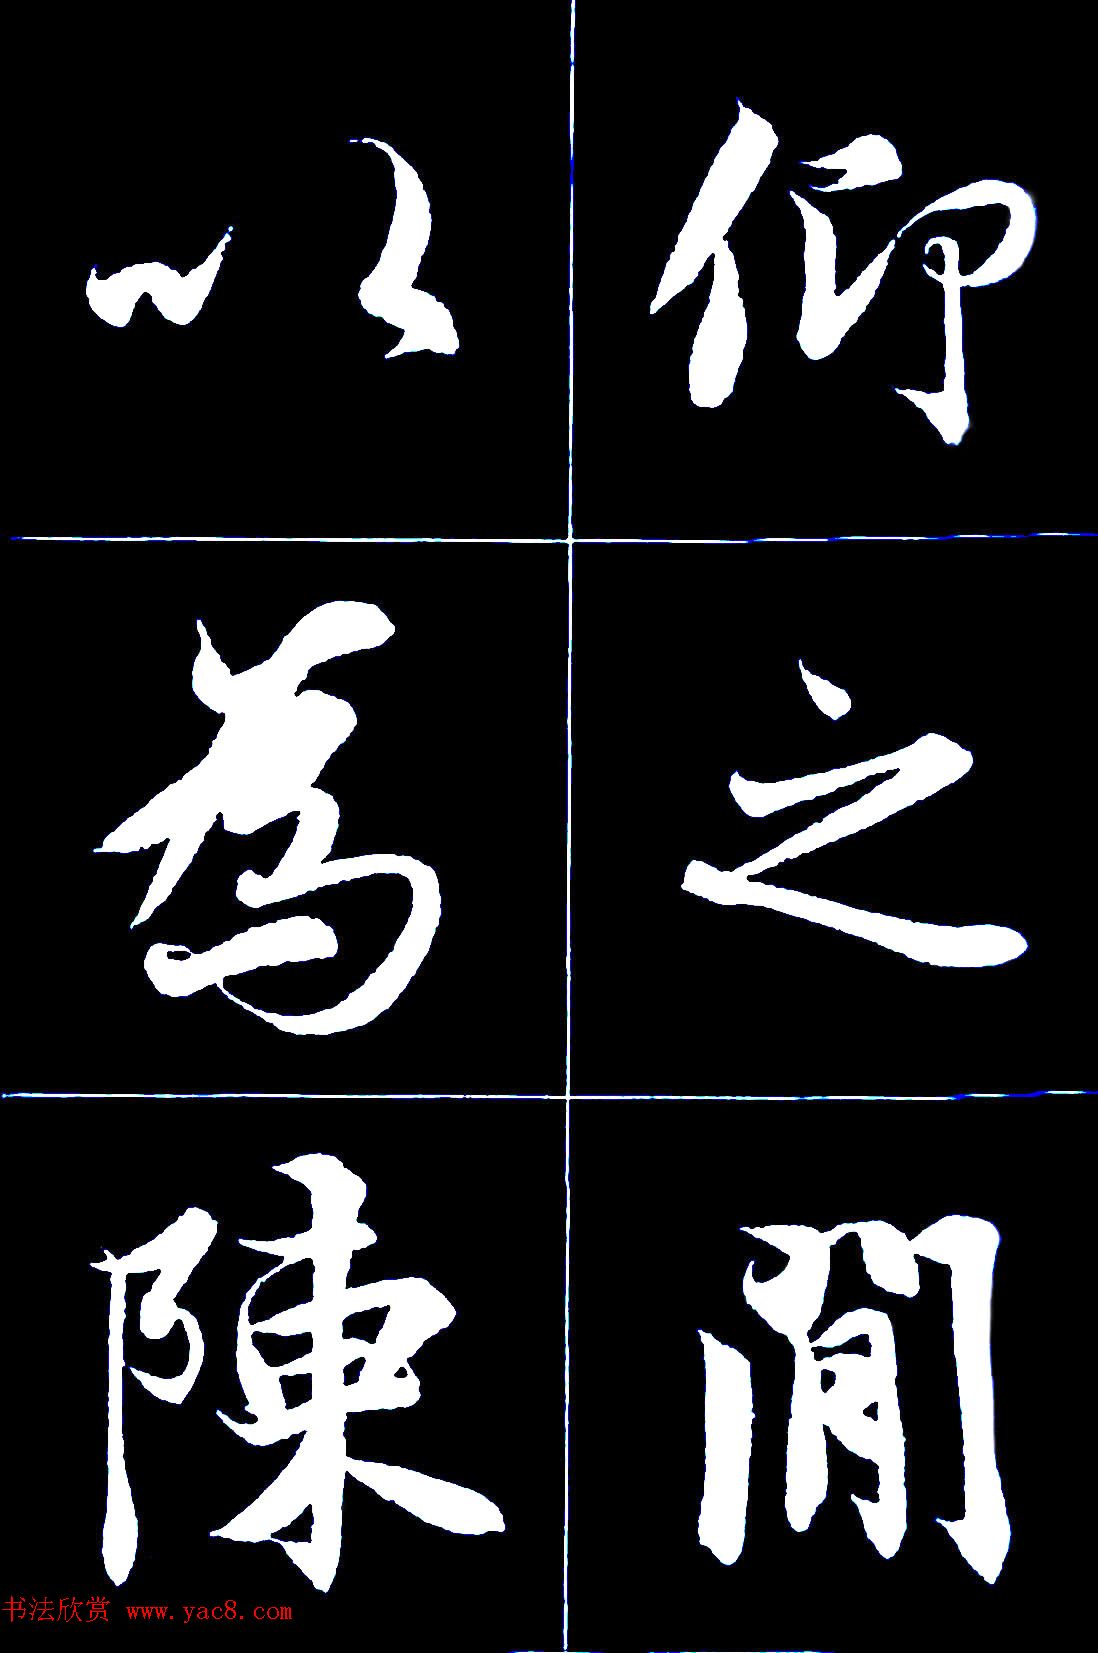 仰之閒
以為陳
书法欣赏 www.yac8.com